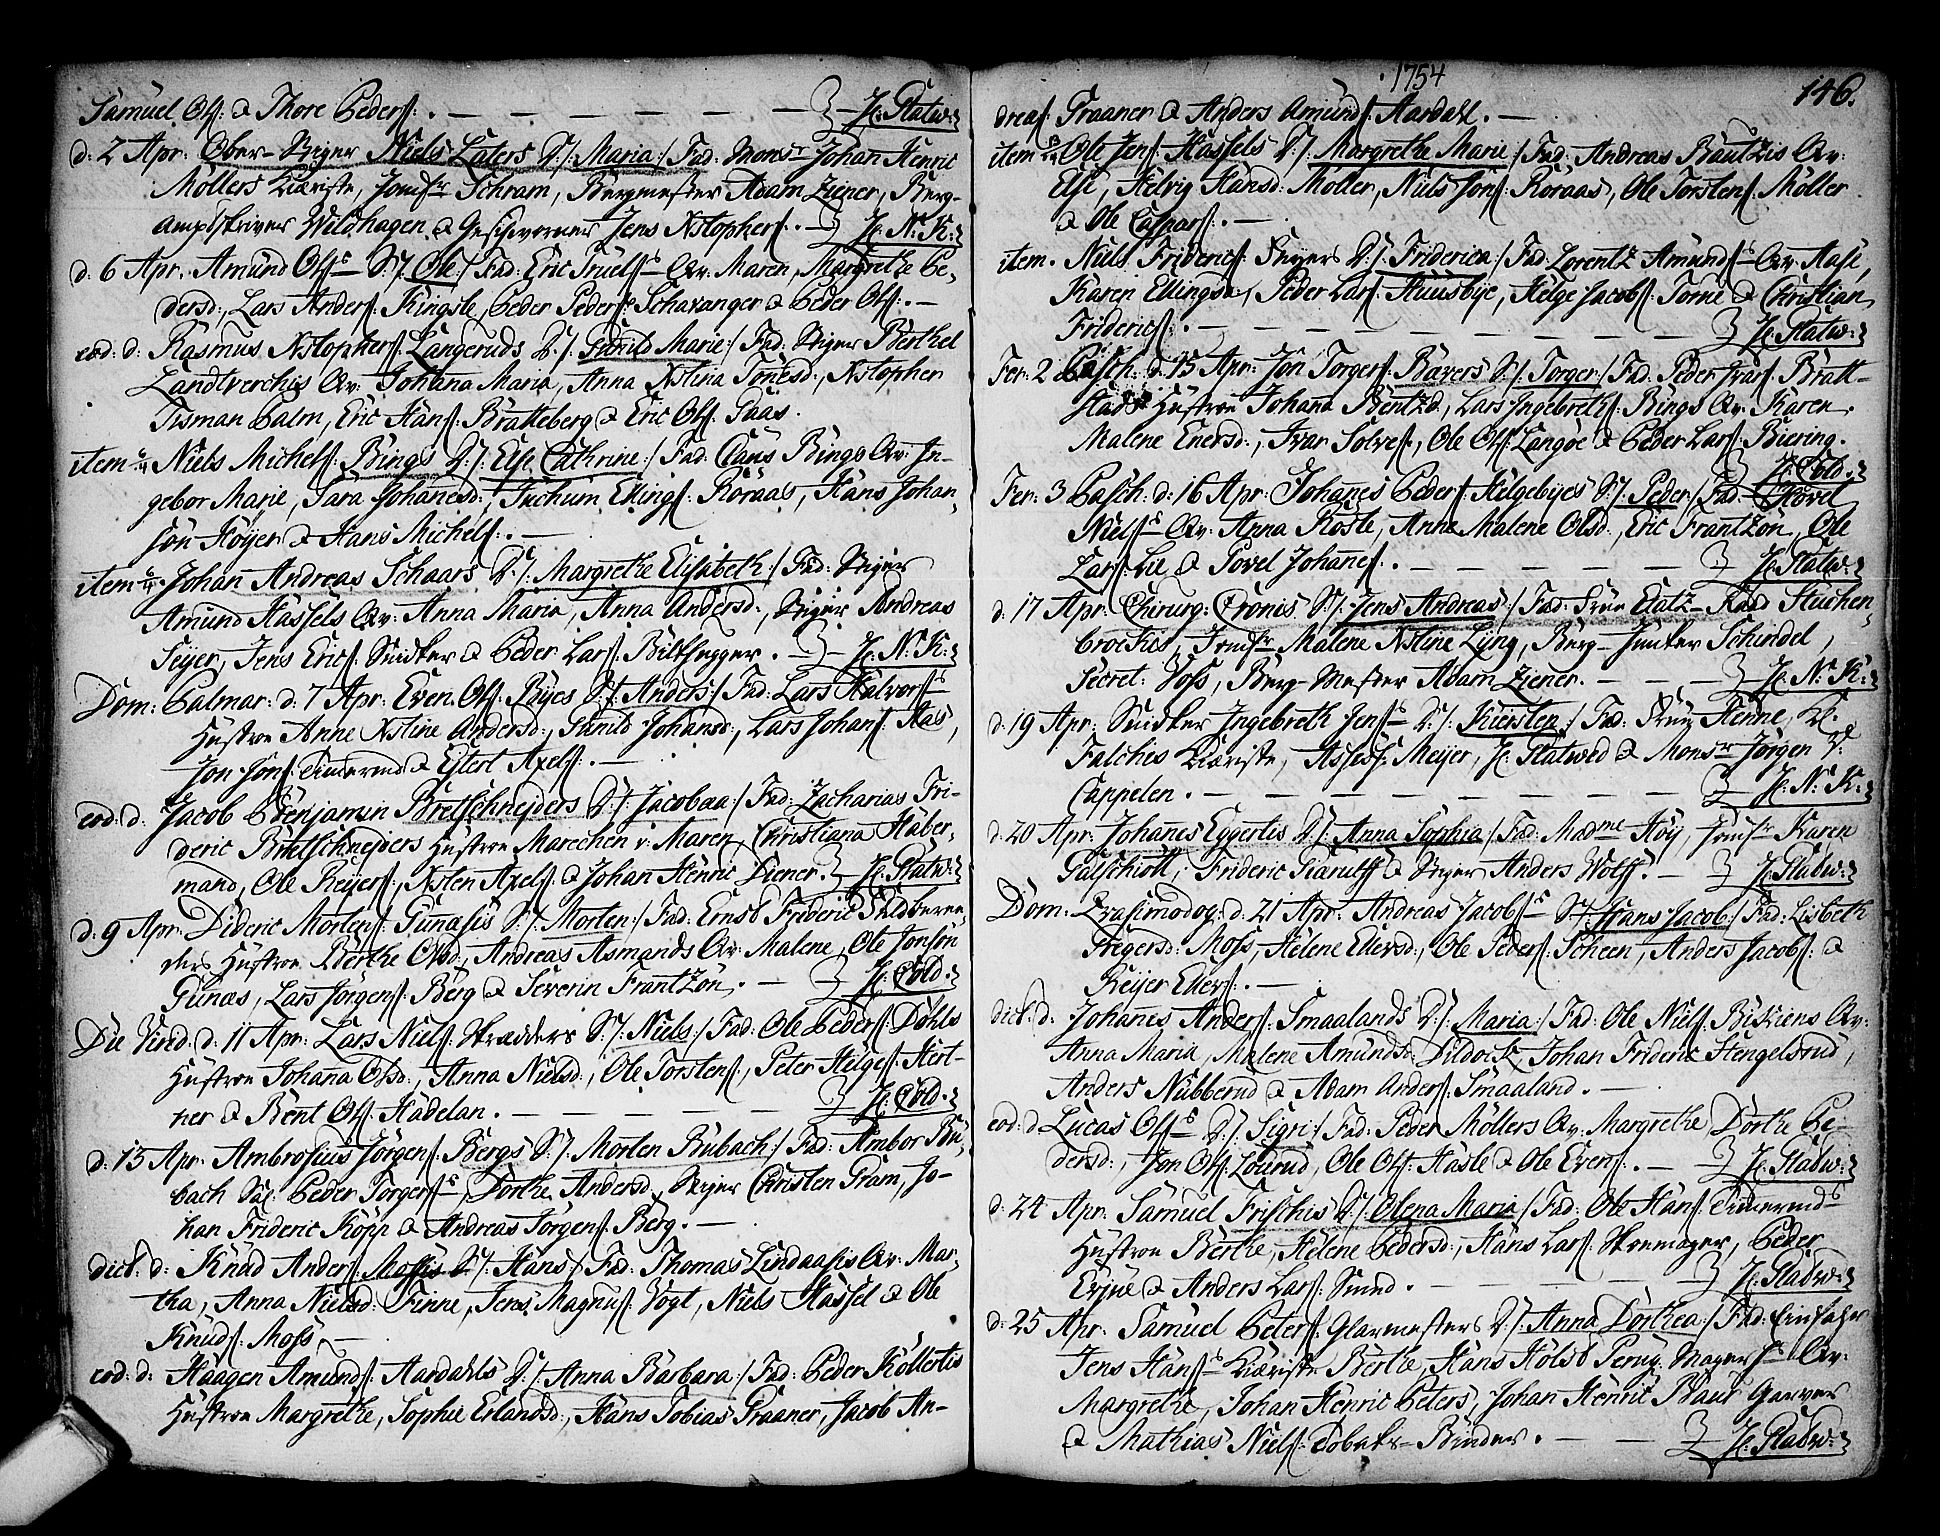 Samuel Ols: & Thore Peders: . — — — — — Hr. Statw:
d: 2 Apr: Ober-Stiger Niels Laters D:/: Maria:/ Fad: Monsr Johan Henric
Möllers Kiæriste, Jomfr Schram, Bergmester Adam Ziener, Berg-
amptskriver Wildhagen & Geschworner Jens Xstophers: . — Hr. N: K:
d: 6 Apr. Amund Olss S:/ Ole:/ Fad: Eric Truelss Qv: Maren, Margrethe Pe-
dersd:, Lars Anders: Kingsle, Peder Peders: Schavanger & Peder Ols: . —
eod: d: Rasmus Xstophers: Langeruds D:/: Gunild Marie:/ Fad: Stiger Berthel
Landtverchis Qv: Johana Maria, Anna Xstina Tönesd:, Xstopher
Tisman Palm, Eric Hans: Bratteberg & Eric Ols: Gaas.
item Niels Michels: Bings D:/: Els. Cathrine:/ Fad: Claus Bings Qv: In-
gebor Marie, Sara Johanesd:, Jochum Ellings: Röraas, Hans Johan-
sön Höyer & Hans Michels: . —
item Johan Andreas Schaars D:/: Margrethe Elisabeth:/ Fad: Stiger
Amund Hassels Qv: Anna Maria, Anna Andersd:, Stiger Andreas
Seyer, Jens Erics: Snidker & Peder Lars: Bilthugger. — Hr. N: K:
Dom: Palmar: d: 7 Apr: Even Ols: Byes S:/: Anders:/ Fad: Lars Halvorss
Hustroe Anne Xstine Andersd:, Gunild Johansd:, Lars Johans: Aas,
Jon Jöns: Timermd & Eylert Axels: . —
eod: d: Jacob Benjamin Bretschneyders D:/: Jacobaa:/ Fad: Zacharias Fri-
deric Bretschneyders Hustroe Marechen v: Maren, Christiana Haber-
mand, Ole Reyers:, Xsten Axels: & Johan Henric Diener. Hr. Statw:
d: 9 Apr: Dideric Mortens: Gunæsis S:/: Morten:/ Fad: Ernst Frideric
ders Hustroe Berthe Olsd:, Andreas Asmands Qv: Malene, Ole Jonsön
Gunæs, Lars Jörgens: Berg & Severin Frantzön. — Hr. Cold:
Die Virid: d: 11 Apr: Lars Niels: Skrædders S:/: Niels:/ Fad: Ole Peders: Döhls
Hustroe Johana Olsd:, Anna Nielsd:, Ole Torstens:, Peter Helges: Hert-
ner & Bent Ols: Hadelan. — — — — — Hr. Cold:
d: 15 Apr: Ambrosius Jörgens: Bergs S:/: Morten Bubach:/ Fad: Ambor Bu-
bach Sal: Peder Torgerss, Dorthe Andersd:, Stiger Christen Gram, Jo-
han Frideric Köpp & Andreas Jörgens: Berg. —
dict: d: Knud Anders: Mossis S:/: Hans:/ Fad: Thomas Lindaasis Qv: Mar-
tha, Anna Nielsd: Finne, Jens Magnus: Vogt, Niels Hassel & Ole
Knuds: Moss. —
eod: d: Haagen Amunds: Aardahls D:/: Anna Barbara:/ Fad: Peder Köllertis
Hustroe Margrethe, Sophie Erlandsd:, Hans Tobias Graaner, Jacob An-
1754
146.
dreas: Graaner & Anders Amunds: Aardahl. —
item Ole Jens: Hassels D:/: Margrethe Marie:/ Fad: Andreas Bautzis Qv:
Else, Helvig Hansd: Möller, Niels Jöns: Röraas, Ole Torstens: Möller
& Ole Caspars: . —
item. Niels Friderics: Skyers D:/: Friderica:/ Fad: Lorentz Amundss Qv: Aase,
Karen Ellingsd:, Peder Lars: Huusbye, Helge Jacobs: Torne & Christian
Friderics: . — — — — — — Hr. Statw:
Fer: 2 Pasch: d: 15 Apr: Jon Torgers: Bævers S:/: Torger:/ Fad: Peder Ivars: Bratt-
stads Hustroe Johana Bentzd:, Lars Ingebreths: Bings Qv: Karen,
Malene Enersd:, Ivar Solves:, Ole Ols: Langöe & Peder Lars: Biering.
Hr. Cold:
Fer: 3 Pasch: d: 16 Apr: Johanes Peders: Helgebyes S:/: Peder:/ Fad: Povel
Nielss Qv: Anna Kösle, Anne Malene Olsd:, Eric Frantzön, Ole
Lars: Lie & Povel Johanes: . — — — — — Hr. Statw:
d: 17 Apr: Chirurg: Cronis S:/: Jens Andreas:/ Fad: Frue Etatz-Raad Stuchen-
brockis, Jomfr Malene Xstine Lyng, Berg-Juncker Schindel,
Secret: Voss, Berg-Mester Adam Ziener. — — — Hr. N: K:
d: 19 Apr: Snidker Ingebreth Jenss D:/: Kiersten:/ Fad: Frue Henne, Kl:
Falchis Kiæriste, Assess: Meyer, Hr. Statwed & Monsr Jörgen v:
Cappelen. — — — — — — Hr. N: K:
d: 20 Apr: Johanes Eggertis D:/: Anna Sophia:/ Fad: Madme Höy, Jomfr Karen
Galschiött, Frideric Kiærulff & Stiger Anders Wolff. — Hr. Statw:
Dom: Qvasimodog: d: 21 Apr: Andreas Jacobss S:/: Hans Jacob:/ Fad: Lisbeth
Gregersd: Moss, Helene Ellersd:, Ole Peders: Scheen, Anders Jacobs: &
Reyer Ellers: . —
dict: d: Johanes Anders: Smaalands D:/: Maria:/ Fad: Ole Niels: Biskiens Qv:
Anna Maria, Malene Amundsd: Dildock, Johan Frideric Stengelsrud,
Anders Nubberud & Adam Anders: Smaaland. —
eod: d Lucas Olss D:/: Sigri:/ Fad: Peder Möllers Qv: Margrethe, Dorthe Pe-
dersd:, Jon Ols: Lourud, Ole Ols: Hasle & Ole Evens: . — Hr. Statw:
d: 24 Apr: Samuel Frischis D:/: Olena Maria:/ Fad: Ole Hans: Timermds
Hustroe Berthe, Helene Pedersd:, Hans Lars: Skoemager, Peder
Erjue & Anders Lars: Smed. — — — — Hr. Statw:
d: 25 Apr: Samuel Peters: Glarmesters D:/: Anna Dorthea:/ Fad: Einfahr
Jens Hanss Kiæriste Berthe, Hans Holst Peruq: Magers Qv:
Margrethe, Johan Henric Peters, Johan Henric Baur Garver
& Mathias Niels: Tobaks-Spinder. — — Hr. Statw: